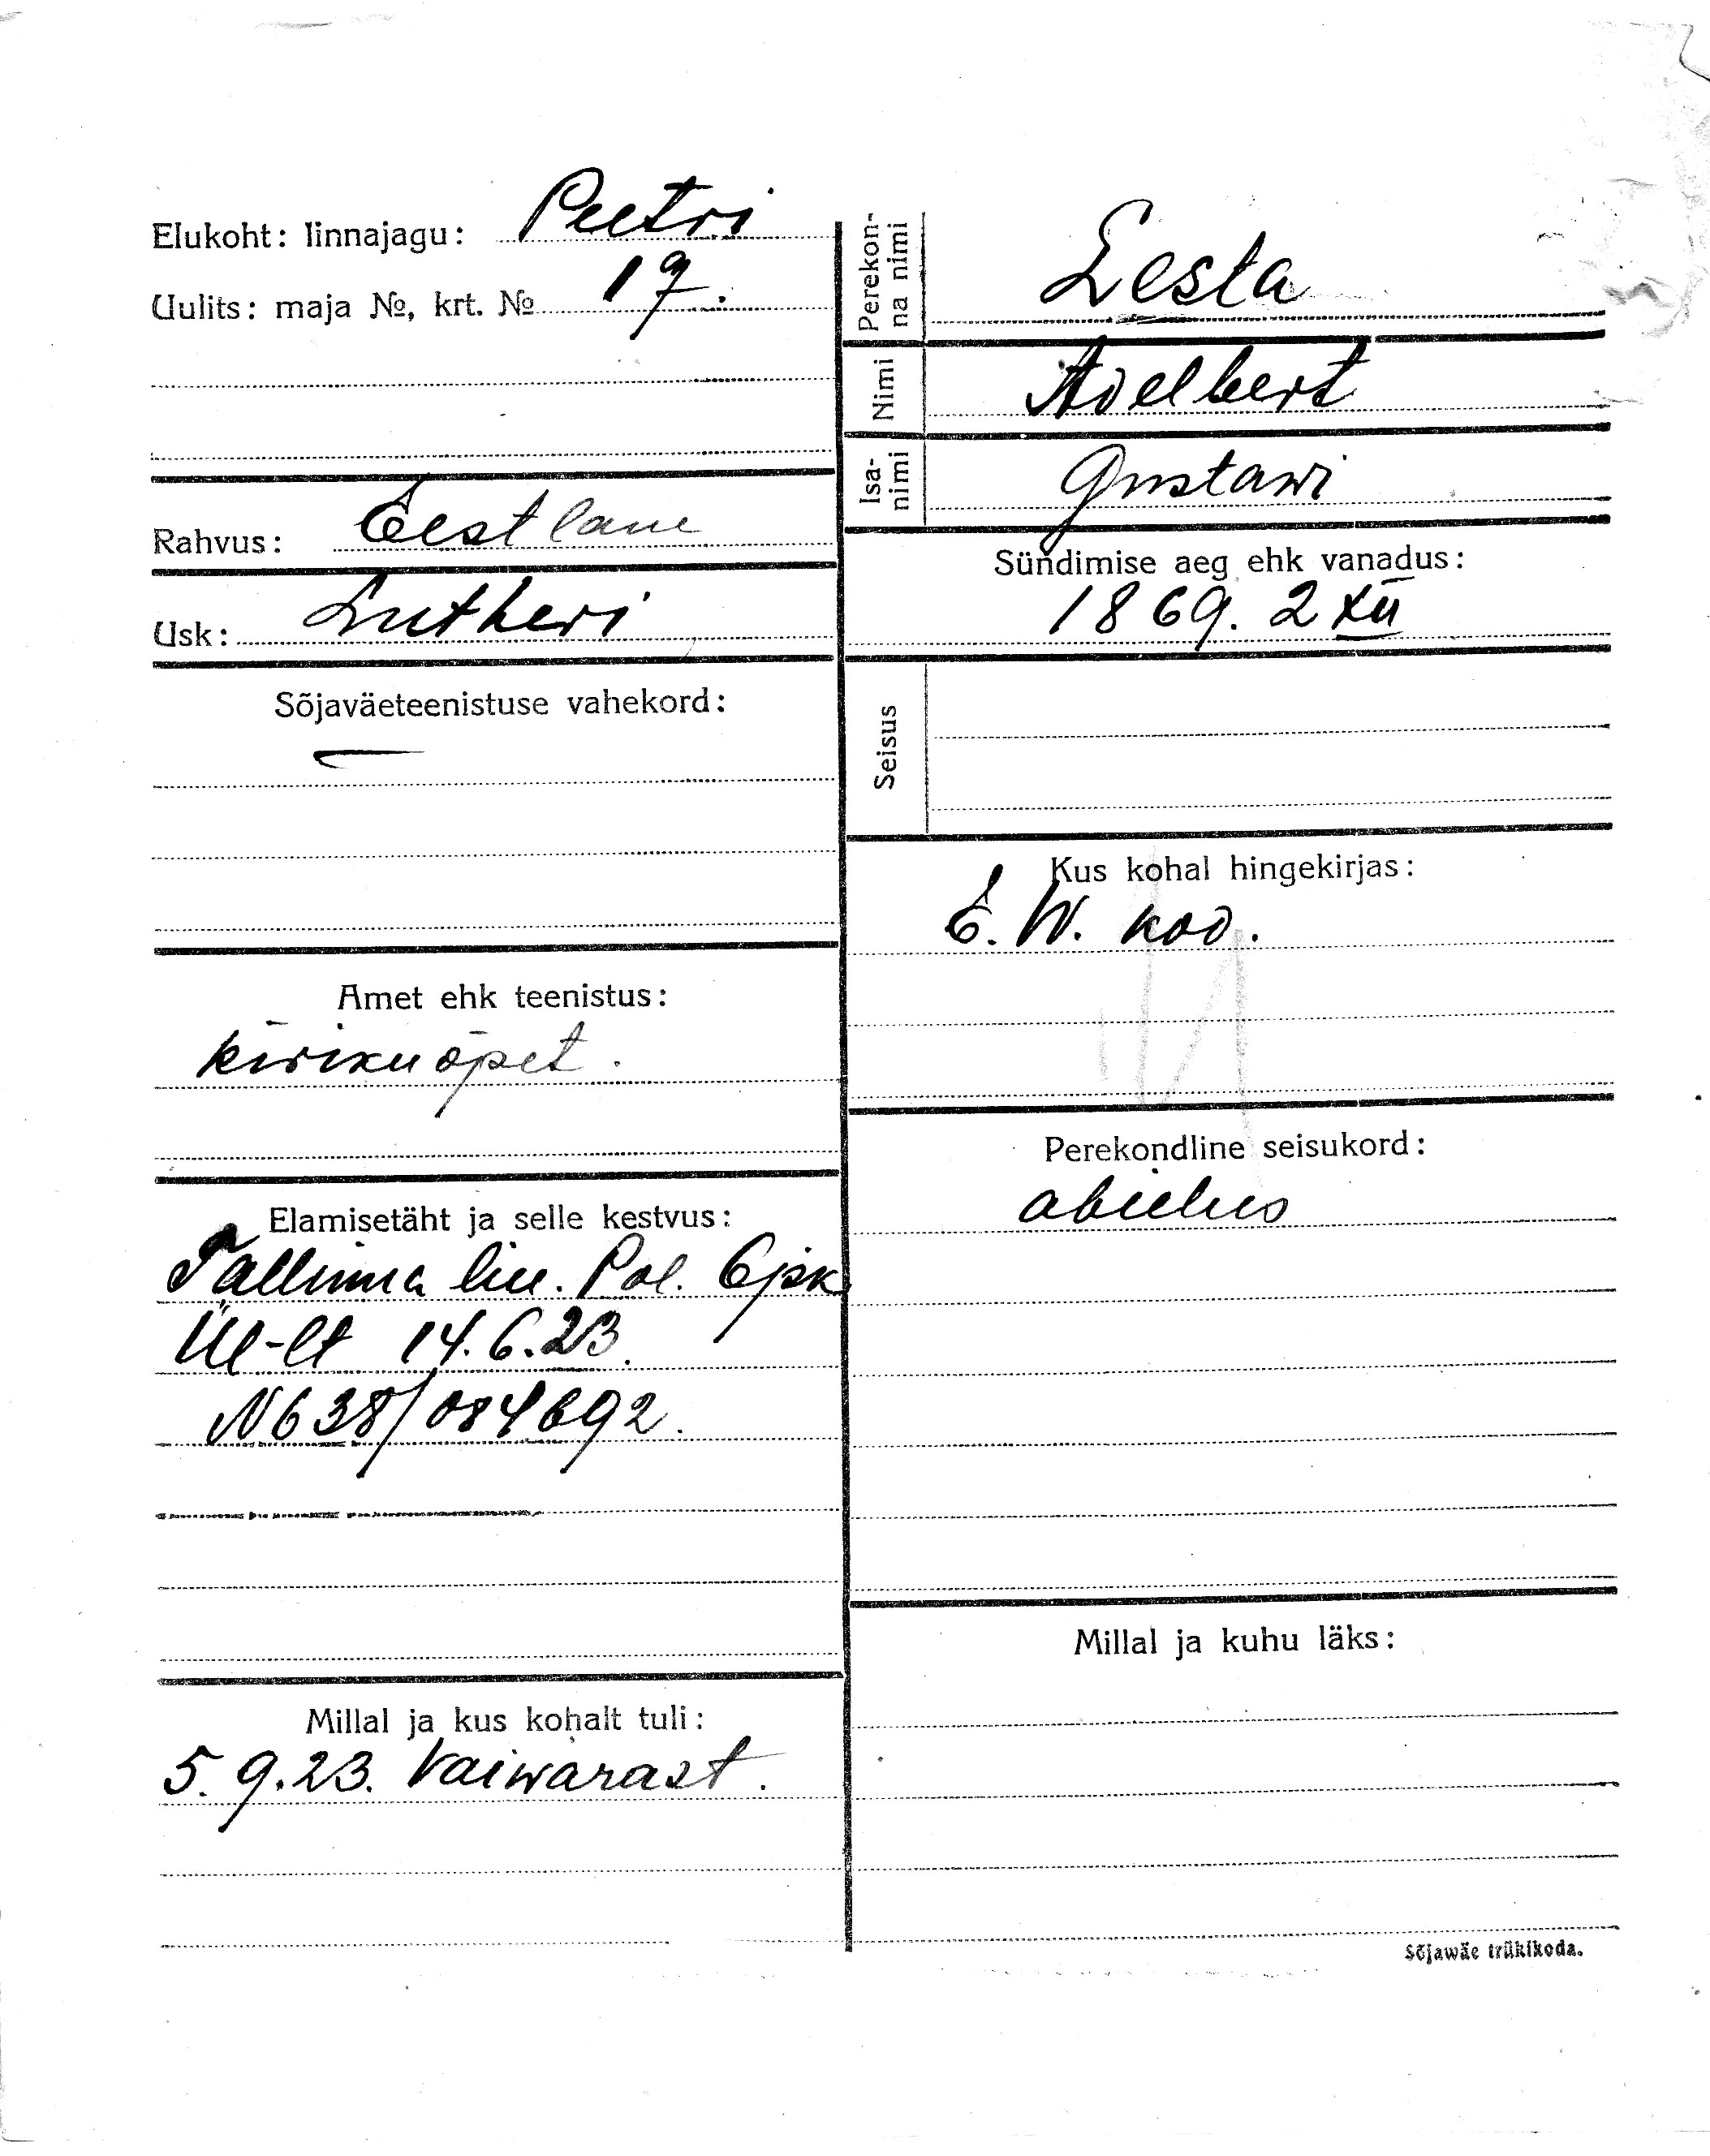 Elukoht: linnajagu: Peetri
Uulits: maja №, krt. № 17.
Rahvus: Eestlane
Usk: Lutheri
Sõjaväeteenistuse vahekord:
Amet ehk teenistus:
kirikuõpet.
Elamisetäht ja selle kestvus:
Tallinna lin. Pol. 6jsk
Ül-lt 14.6.23.
N638/084692.
Millal ja kus kohalt tuli:
5.9.23. Vaiwarast.
Perekon-
na nimi
Lesta
Nimi Adelbert
Isa-
nimi
Gustawi
Sündimise aeg ehk vanadus:
1869. 2 XII
Seisus
Kus kohal hingekirjas:
E.W. kod.
Perekondline seisukord:
abielus
Millal ja kuhu läks:
Sõjawäe trükikoda.